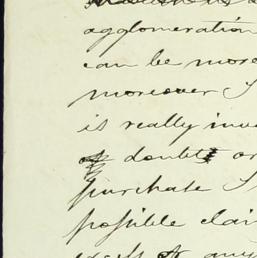 agglomeration
can be more
moreover I
is really inv
of doubt or
purchase I
possible clai